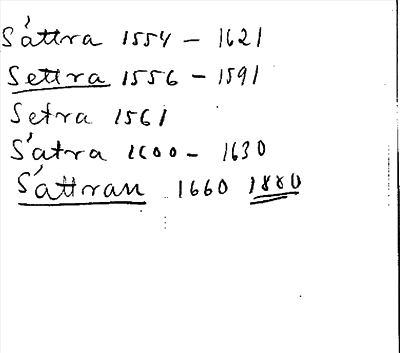 Såttra 1554 – 1621
Settra 1556 – 1591
Setra 1561
Såtra 1600 – 1630
Såttran 1660 1880